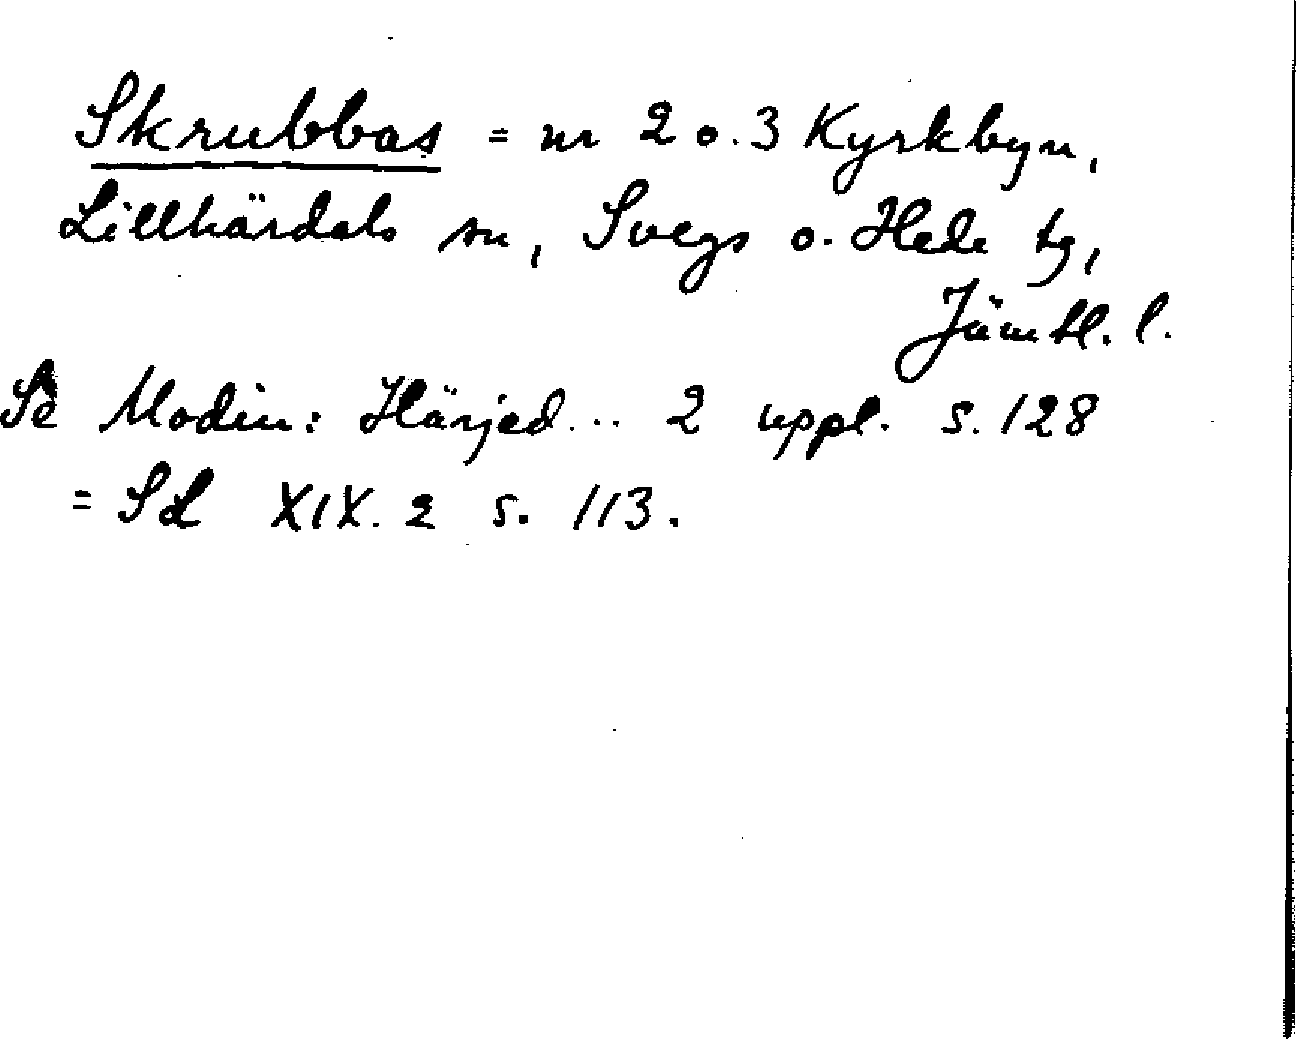 Skrubbas = nr 2 o. 3 Kyrkbyn,
Lillhärdals sn, Svegs o. Hede tg,
Jämtl. l.
Se Modin: Härjed... 2 uppl. s. 128
= SL XIX. 2 s. 113.